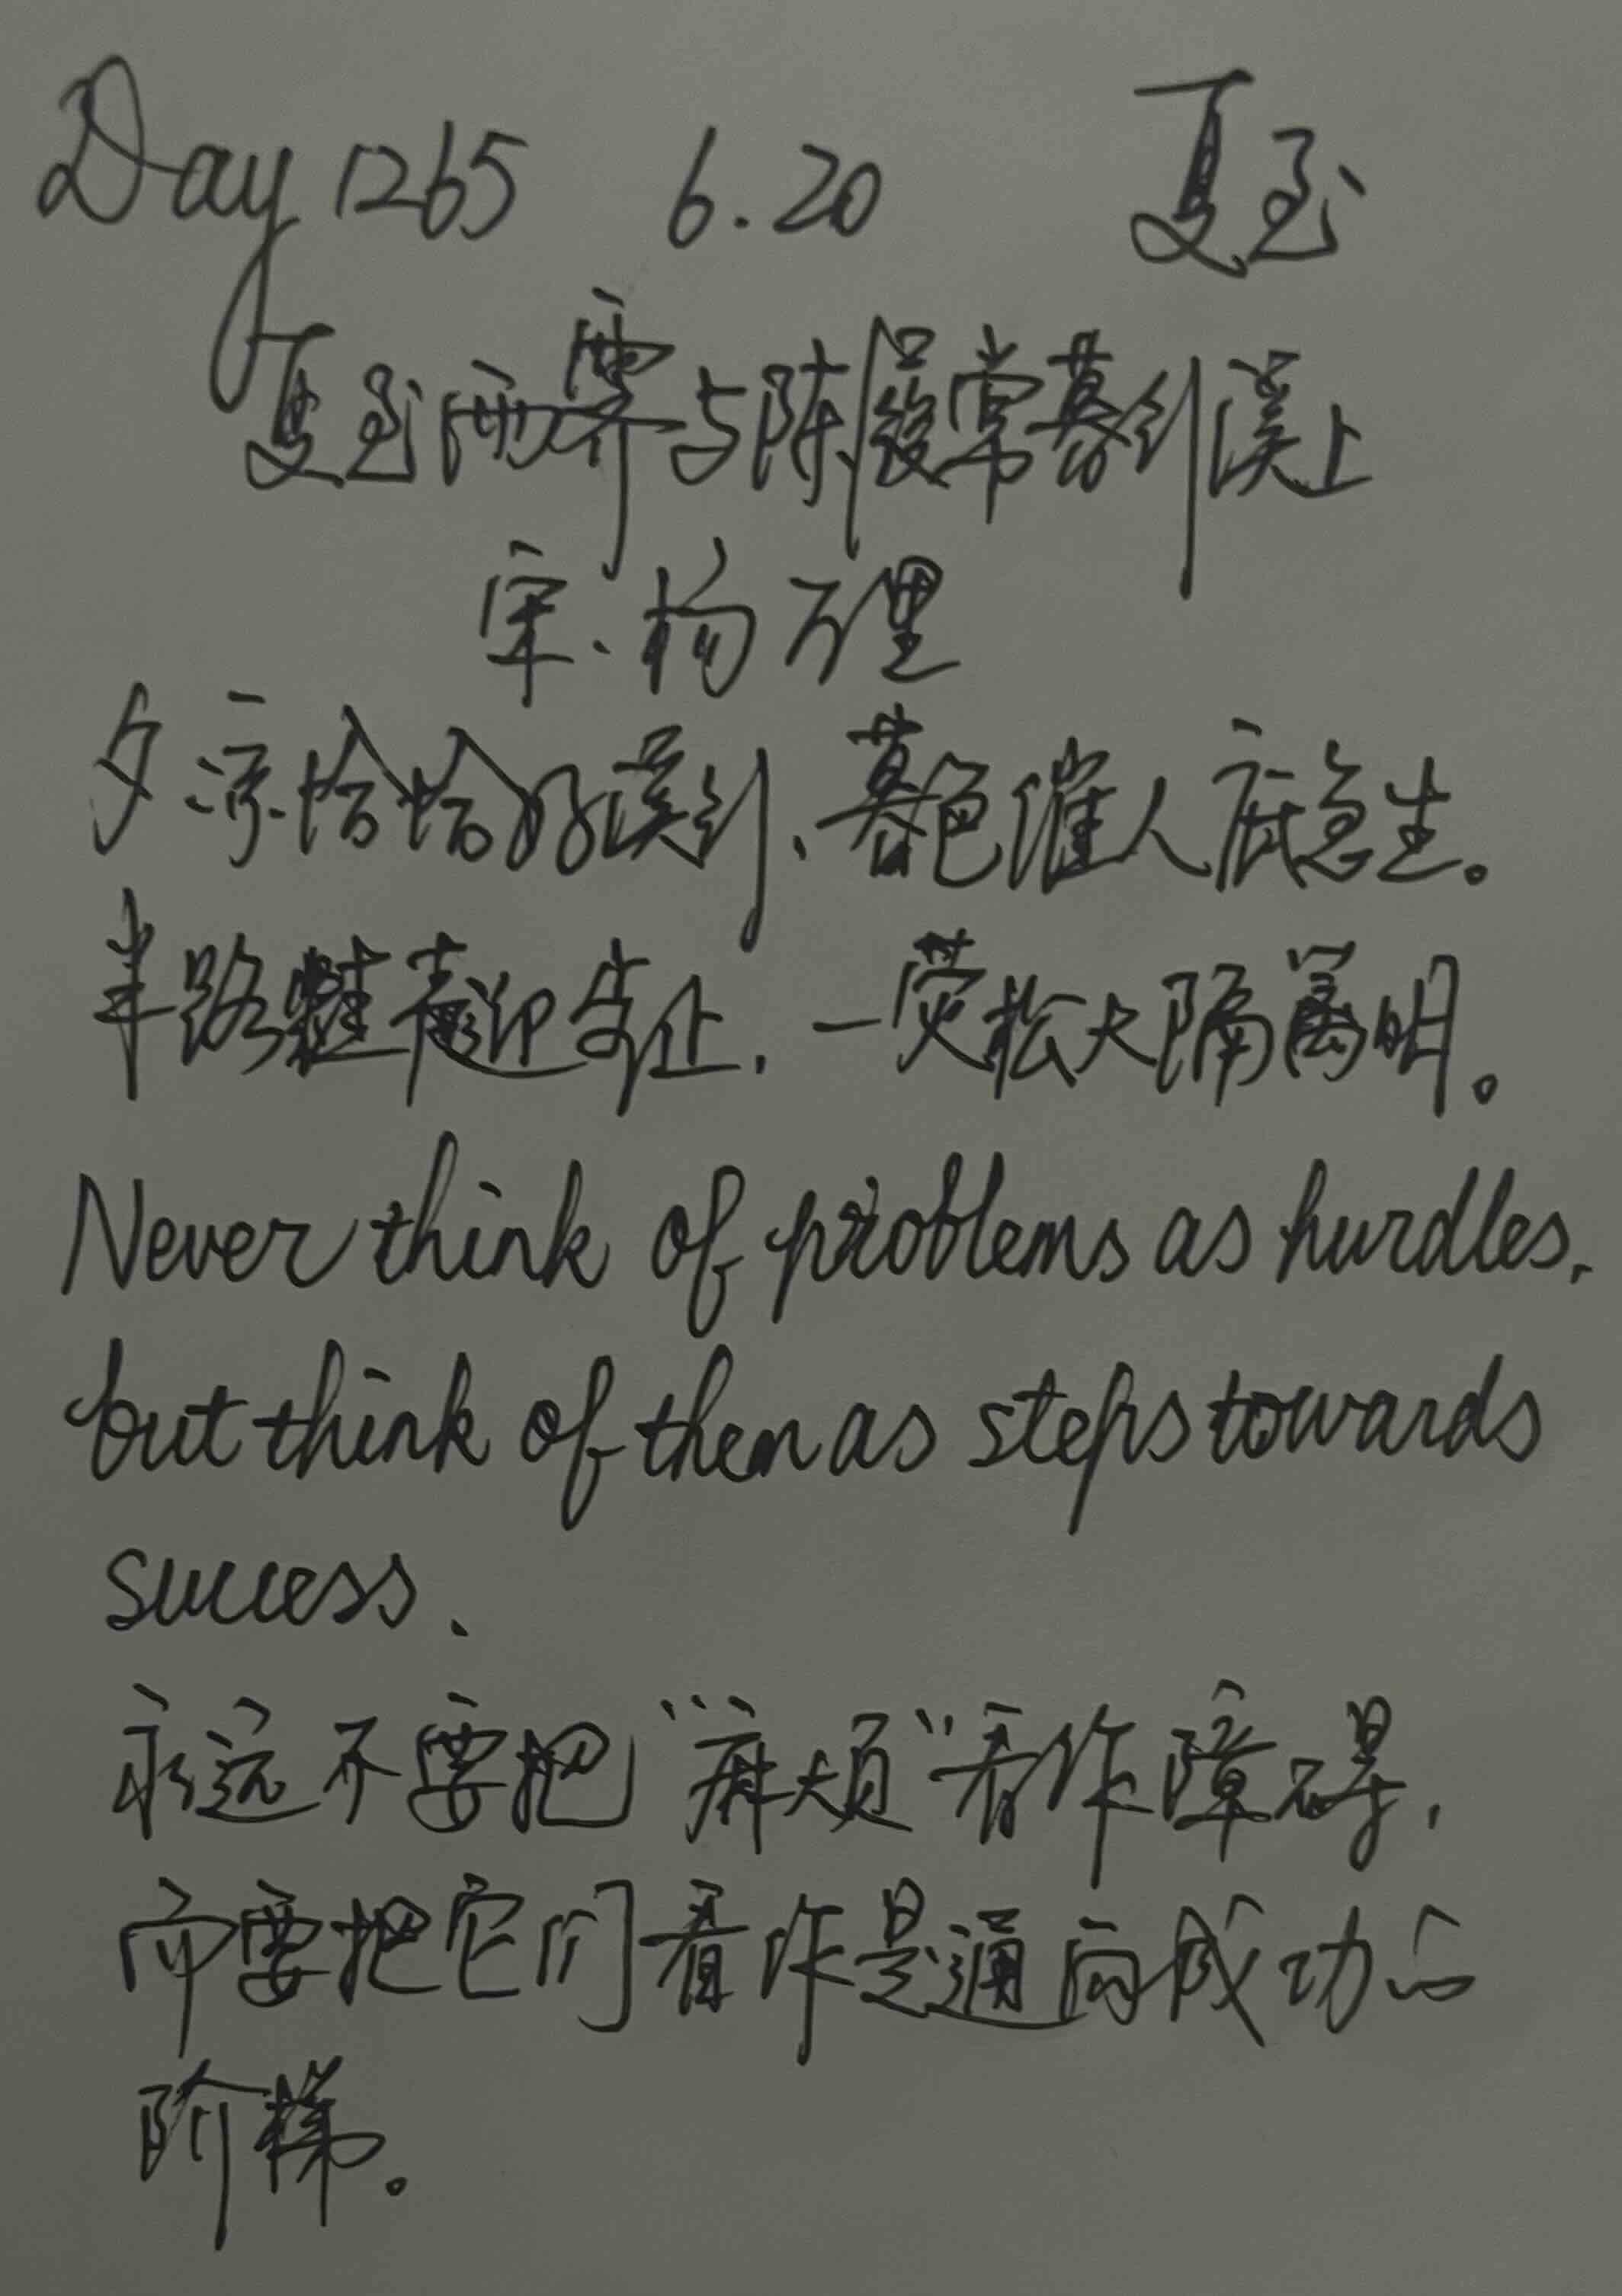 Day 1265 6.20 夏至
夏至雨霁与陈履常暮行溪上
宋·杨万里
夕凉恰恰好溪行、暮色催人底急生。
半路蛙声迎步止，一荧松火隔篱明。
Never think of problems as hurdles,
but think of them as steps towards
success.
永远不要把“麻烦“看作障碍，
而要把它们看作是通向成功的
阶梯。